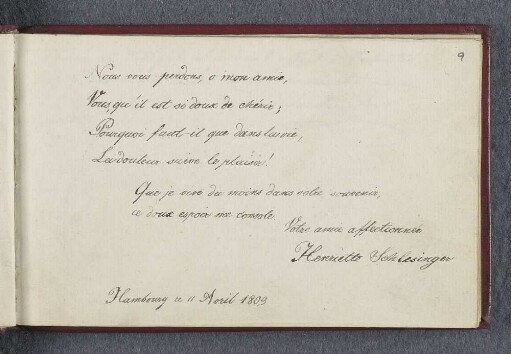 9
Nous vous perdons, o mon amie,
Vous, qu'il est si doux de chérir;
Pourquoi faut-il que dans la vie,
La douleur suive le plaisir!
Que je vive du moins dans votre souvenir,
ce doux espoir me console.
Votre amie affectionnée
Henriette Schlesinger
Hambourg ce 11 Avril 1809